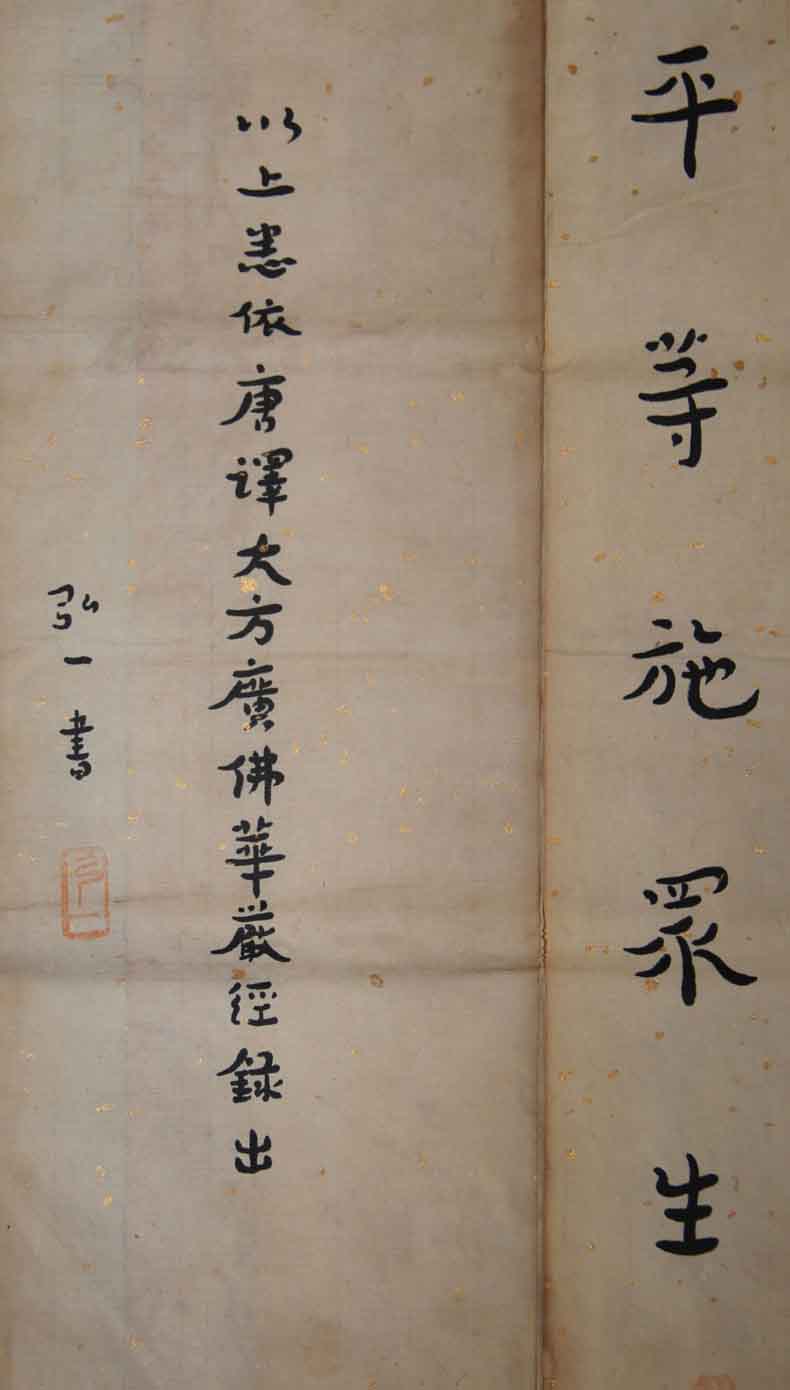 平等施眾生
以上悉依唐譯大方廣佛華嚴經錄出
弘一書